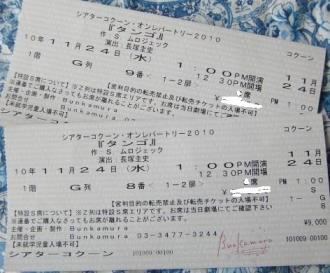 シアターコクーン・オンレパートリー2010
コクーン
『タンゴ』
作 S.ムロジェック
演出:長塚圭史
10年11月24日(水)
1:00PM開演
12:30PM開場
11月
24日
1階 G列 9番 1-2扉
席
PM 1:00
【営利目的の転売禁止及び転売チケットの入場不可】
主催・企画・製作 Bunkamura
シアターコクーン・オンレパートリー2010
コクーン
『タンゴ』
作 S.ムロジェック
演出:長塚圭史
10年11月24日(水)
1:00PM開演
12:30PM開場
11月
24日
1階 G列 8番 1-2扉
席
PM 1:00
【営利目的の転売禁止及び転売チケットの入場不可】
【特設S席について】※Z列は特設S席エリアです。お席は当日劇場にてご確認下さい
1-
G
8
¥9,000
主催・企画・製作 Bunkamura
お問合せ Bunkamura 03-3477-3244
【未就学児童入場不可】
Bunkamura
シアターコクーン
101009 00100
101009-00100